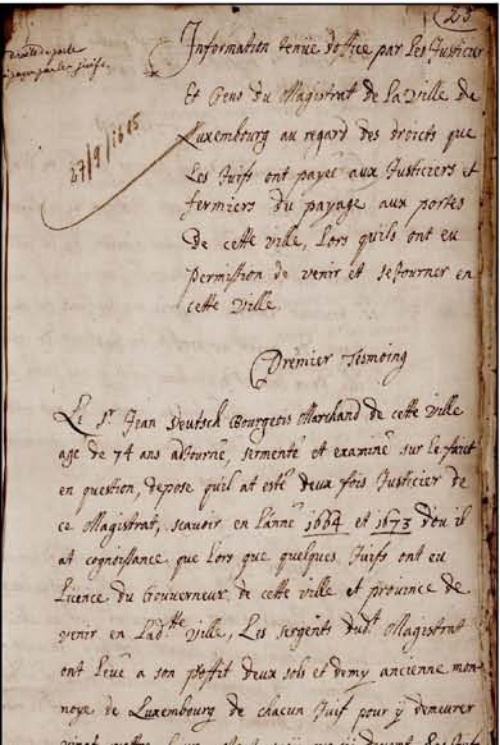 (23
droits de porte
payez par les juifs.
27/9/1685
Information tenue d'office par Les Justicier
Et Gens du Magistrat de La ville de
Luxembourg au regard des droicts que
Les Juifs ont payez aux Justiciers et
fermiers du payage aux portes
De cette ville, Lors quils ont eu
permission de venir et sejourner en
cette ville
Premier Tesmoing
Le Sr. Jean Deutsch Bourgeois Marchand de cette ville
age de 74 ans adiourné, sermenté et examiné sur le faict
en question, depose quil at esté deux fois Justicier de
ce Magistrat, scavoir en L'anné 1664 et 1673 d'ou il
at cognoissance que Lors que quelques Juifs ont eu
Licence du Gouverneur de cette ville et province de
venir en Ladtte ville, Les sergents dudt Magistrat
ont Levé a son proffit deux sols et demy ancienne mon-
noye de Luxembourg de chacun Juif pour y demeurer
vingt quattre